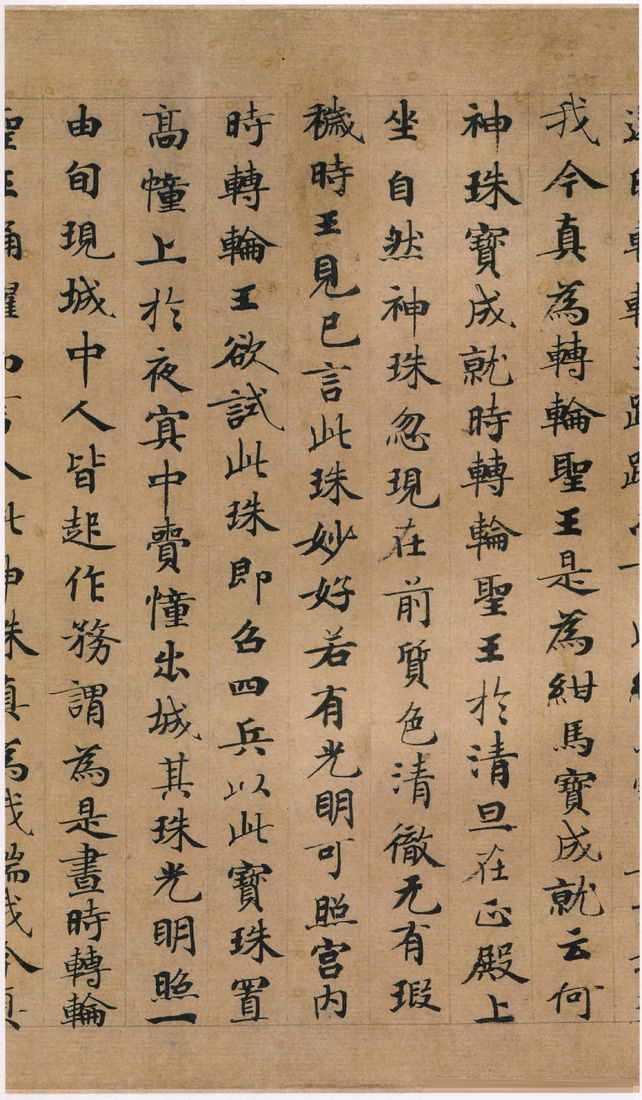 我今真為轉輪聖王是為紺馬寶成就云何
神珠寶成就時轉輪聖王於清旦在正殿上
坐自然神珠忽現在前質色清徹无有瑕
穢時王見已言此珠妙好若有光明可照宮内
時轉輪王欲試此珠即召四兵以此寶珠置
高幢上於夜冥中賷幢出城其珠光明照一
由旬現城中人皆起作務謂為是晝時轉輪
聖王踊躍而言今此神珠真為我瑞我今真